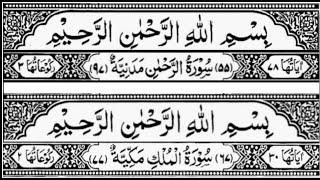 بِسْمِ اللّٰهِ الرَّحْمٰنِ الرَّحِيْمِ
اٰيَاتُهَا ٧٨ (٥٥) سُوْرَةُ الرَّحْمٰنِ مَدَنِيَّةٌ (٩٧) رُكُوْعَاتُهَا ٣
بِسْمِ اللّٰهِ الرَّحْمٰنِ الرَّحِيْمِ
اٰيَاتُهَا ٣٠ (٦٧) سُوْرَةُ الْمُلْكِ مَكِّيَّةٌ (٧٧) رُكُوْعَاتُهَا ٢